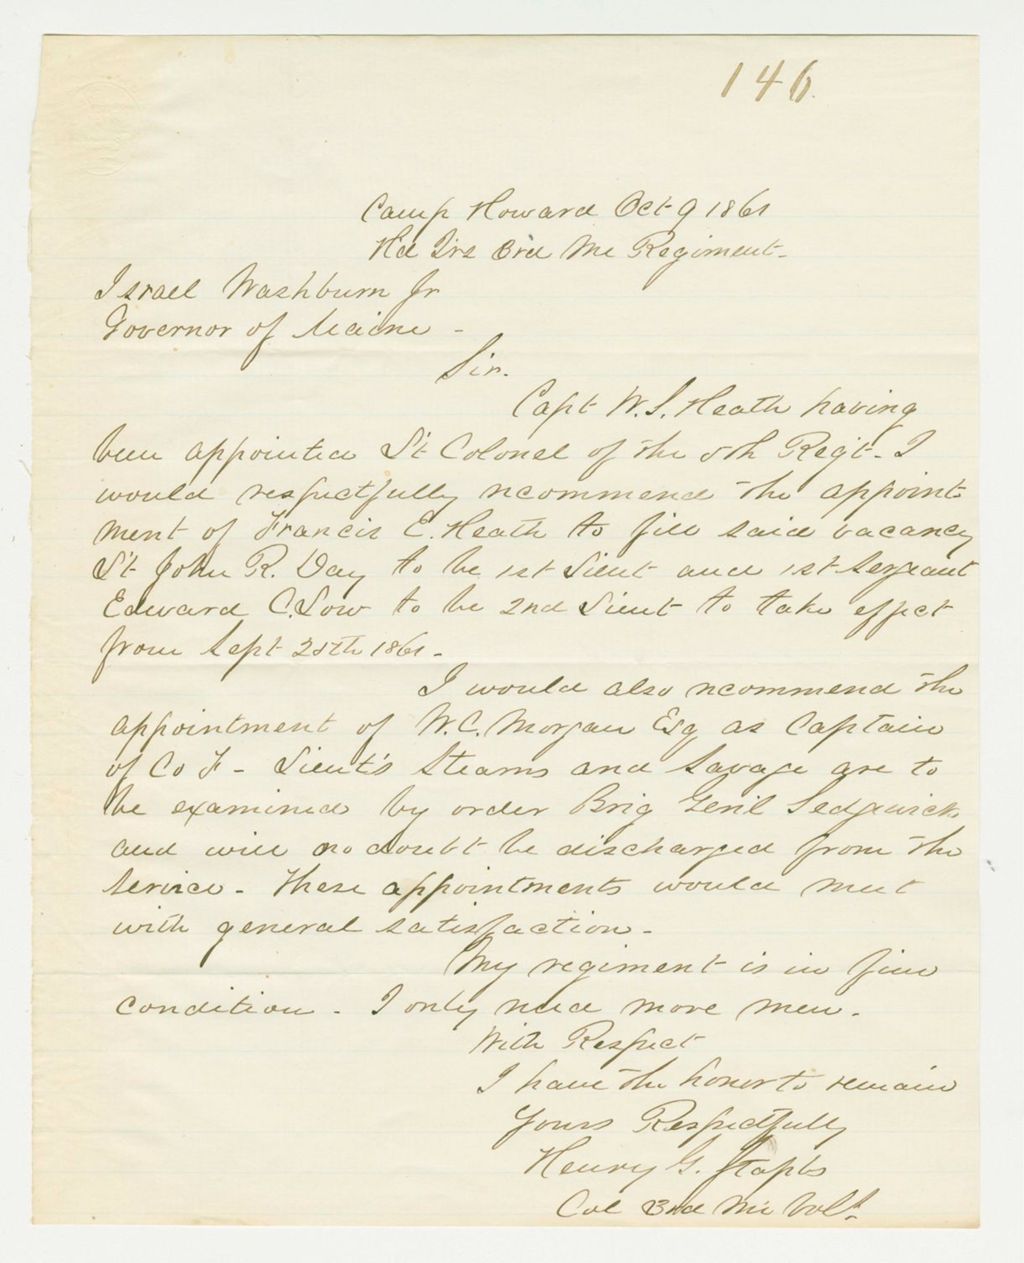 146.
Camp Howard Oct 9 1861
Hd Qrs 3rd Me Regiment-
Israel Washburn Jr
Governor of Maine -
Sir.
Capt W.S. Heath having
been appointed Lt Colonel of the 5th Regt- I
would respectfully recommend the appoint
ment of Francis E. Heath to fill said vacancy
Lt John R. Day to be 1st Lieut and 1st Sergeant
Edward C. Low to be 2nd Lieut to take effect
from Sept 25th 1861-
I would also recommend the
appointment of W.C. Morgan Esq as Captain
of Co F- Lieut's Stearns and Savage are to
be examined by order Brig Genl Sedgwick
and will no doubt be discharged from the
Service- These appointments would meet
with general satisfaction-
My regiment is in fine
condition. I only need more men.
With Respect
I have the honor to remain
Yours Respectfully
Henry G. Staples
Col 3rd Me Vols.